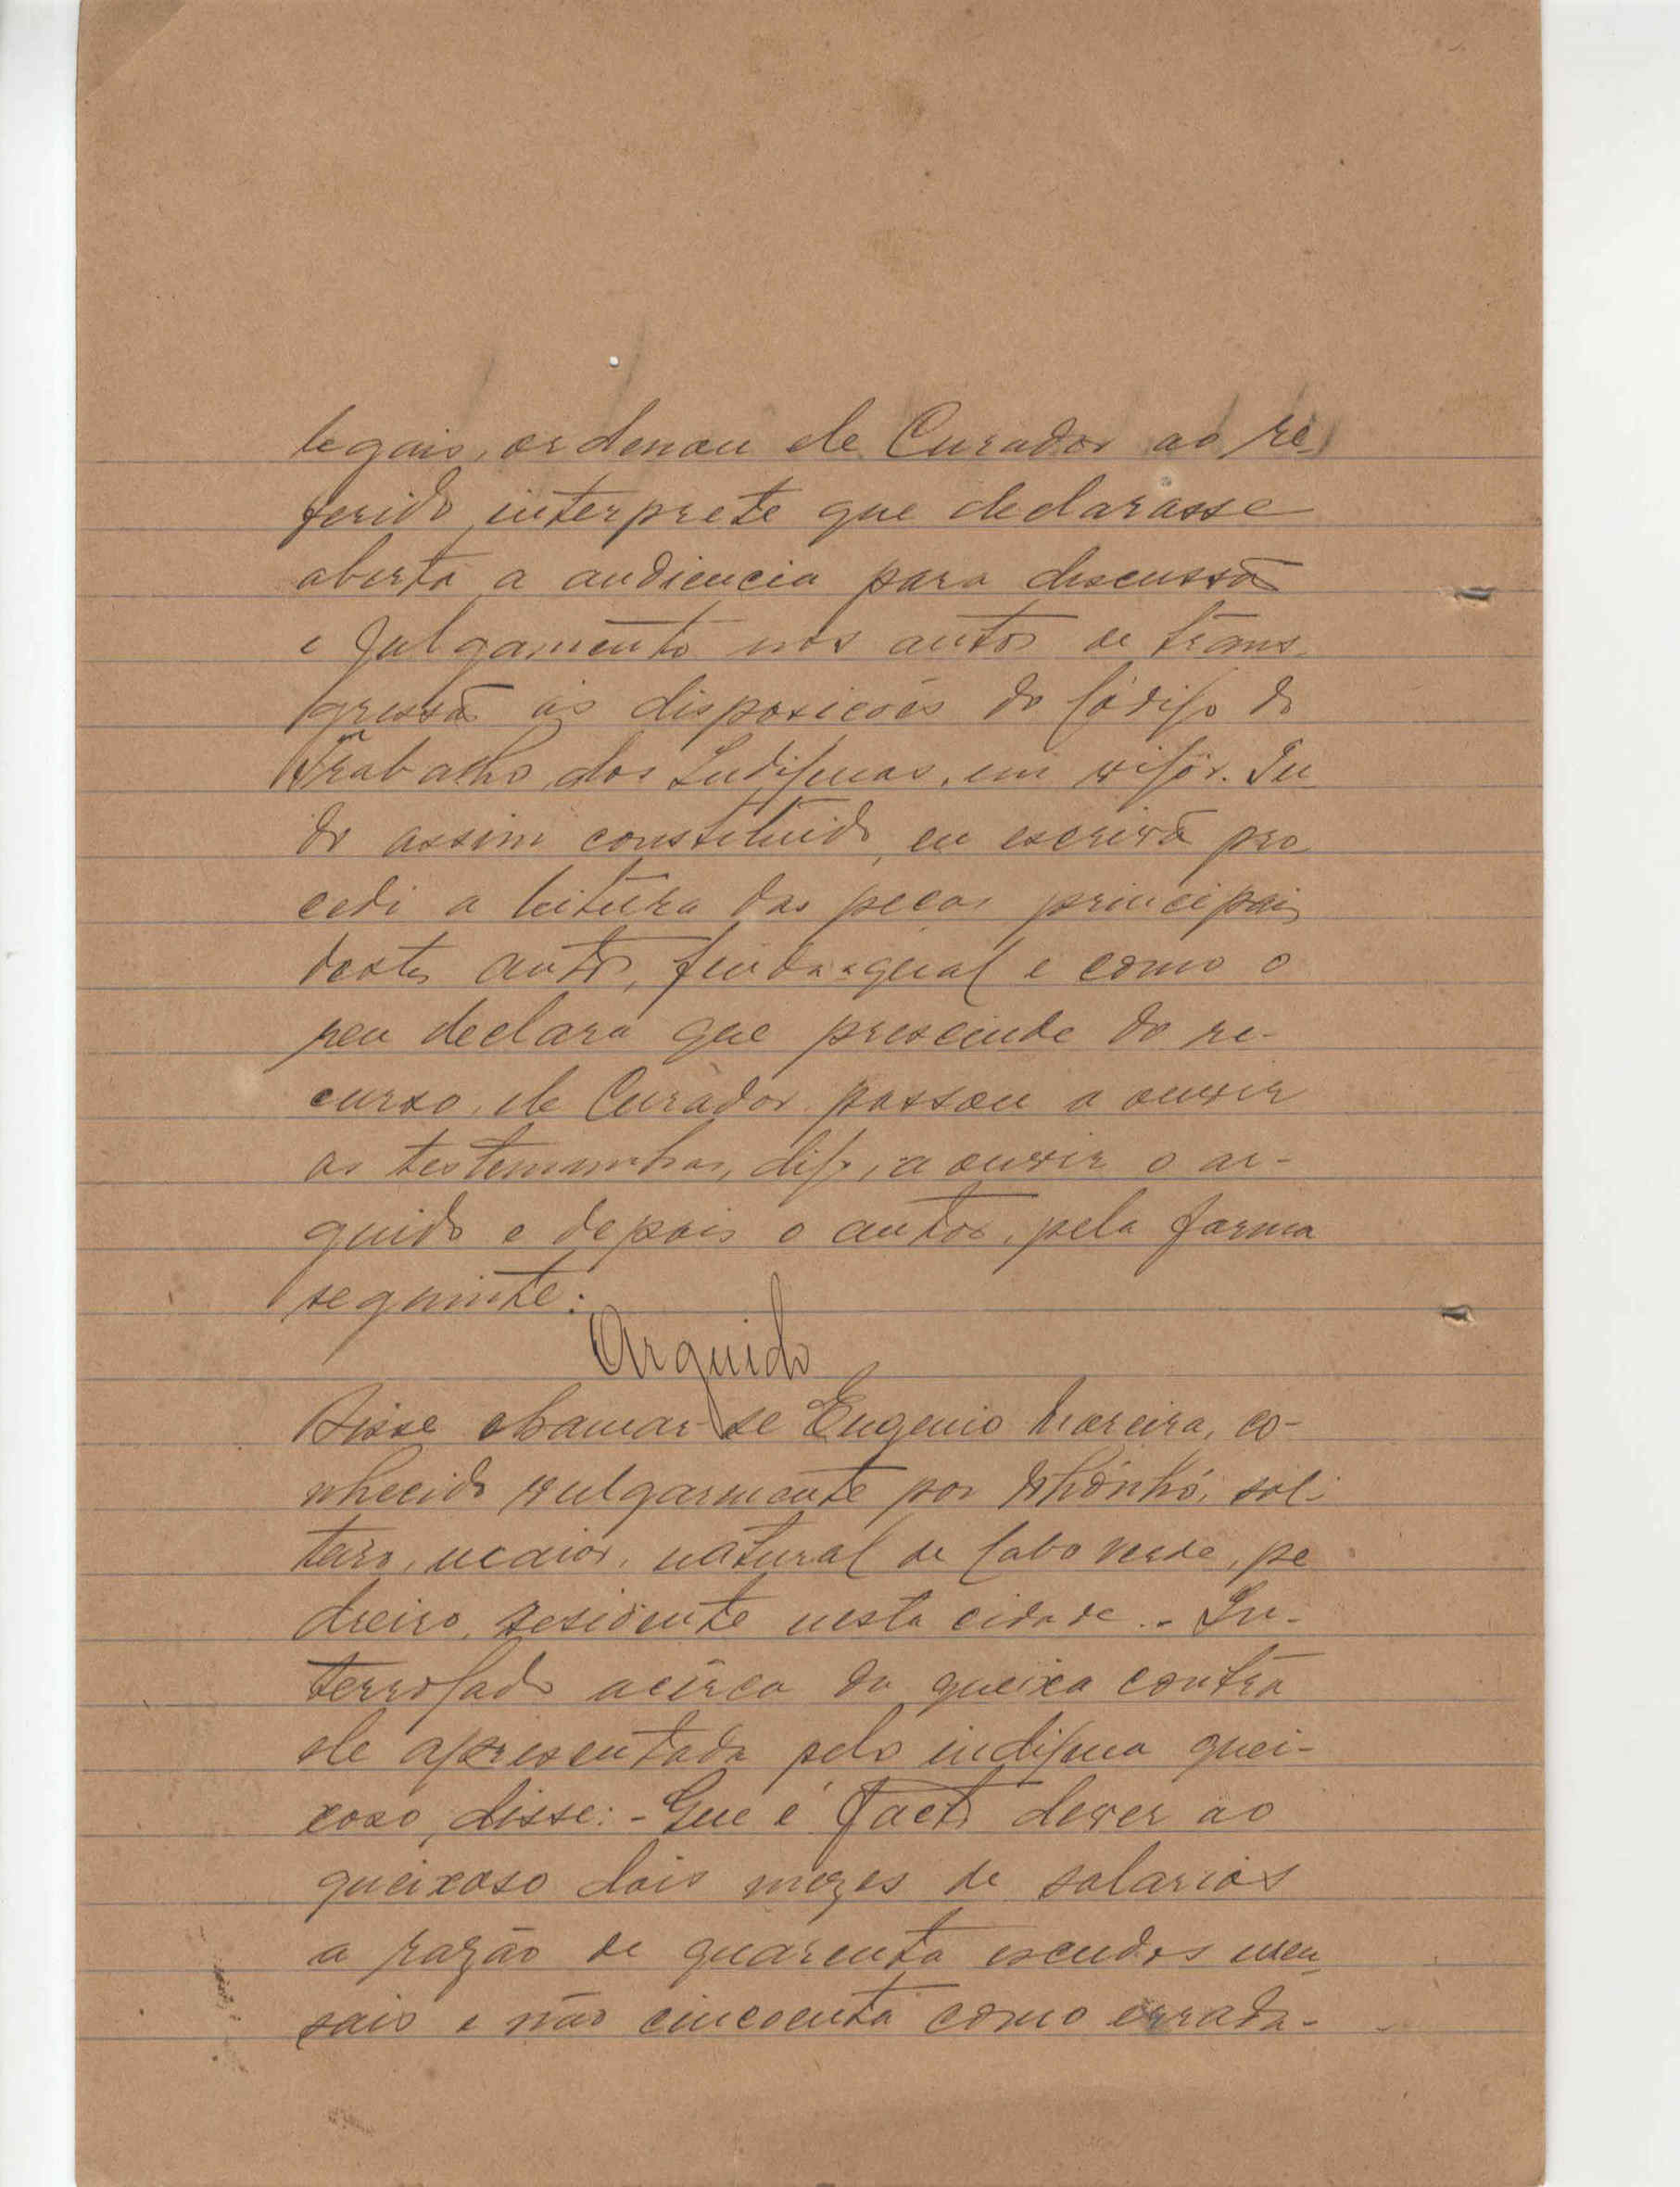 legais, ordenou ele Curador ao re-
ferido interprete que declarasse
aberta a audiencia para discussão
e julgamento nos autos de trans-
gressão ás disposicões do Código do
Trabalho dos Indigenas, em vigôr. Tu-
do assim constituido, eu escrivão pro-
cedi a leitura das peças principais
destes autos, finda a qual e como o
reu declara que prescinde do re-
curso, ele Curador passou a ouvir
as testemunhas, digo, a ouvir o ar-
guido e depois o autor, pela forma
seguinte:
Arguido
Disse chamar-se Eugenio Moreira, co-
nhecido vulgarmente por Nhônhó, sol-
teiro, maior, natural de Cabo Verde, pe
dreiro, residente nesta cidade. - In-
terrogado acêrca da queixa contra
ele apresentada pelo indigena quei-
xoso, disse: - Que é facto dever ao
queixoso dois mezes de salarios
a razão de quarenta escudos men-
sais e não cincoenta como errada-